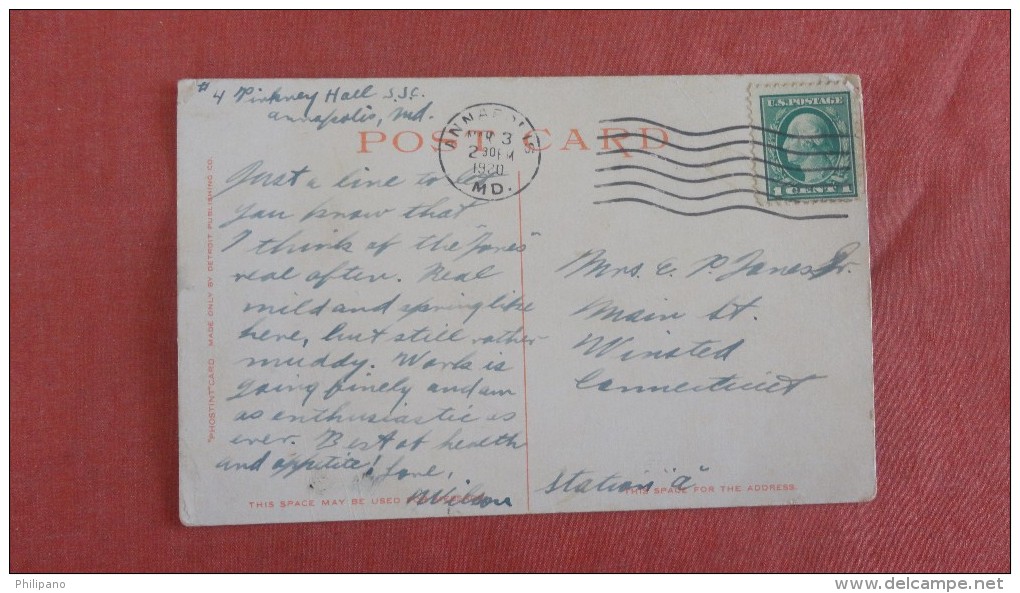 #4 Pinkney Hall S.J.C.
Annapolis, Md.
POST CARD
ANNAPOLIS
2 30 PM
1920
MD.
U.S. POSTAGE
1 CENT 1
Just a line to let
you know that
I think of the "Jones"
real often. Real
mild and springlike
here, but still rather
muddy. Work is
going finely and am
as enthusiastic as
ever. Best of health
and appetite! Love,
Wilson
Mrs. E. P. Jones Jr.
Main St.
Winsted
Connecticut
Station "A"
"PHOSTINT" CARD MADE ONLY BY DETROIT PUBLISHING CO.
THIS SPACE MAY BE USED
THIS SPACE FOR THE ADDRESS.
Philipano
www.delcampe.net